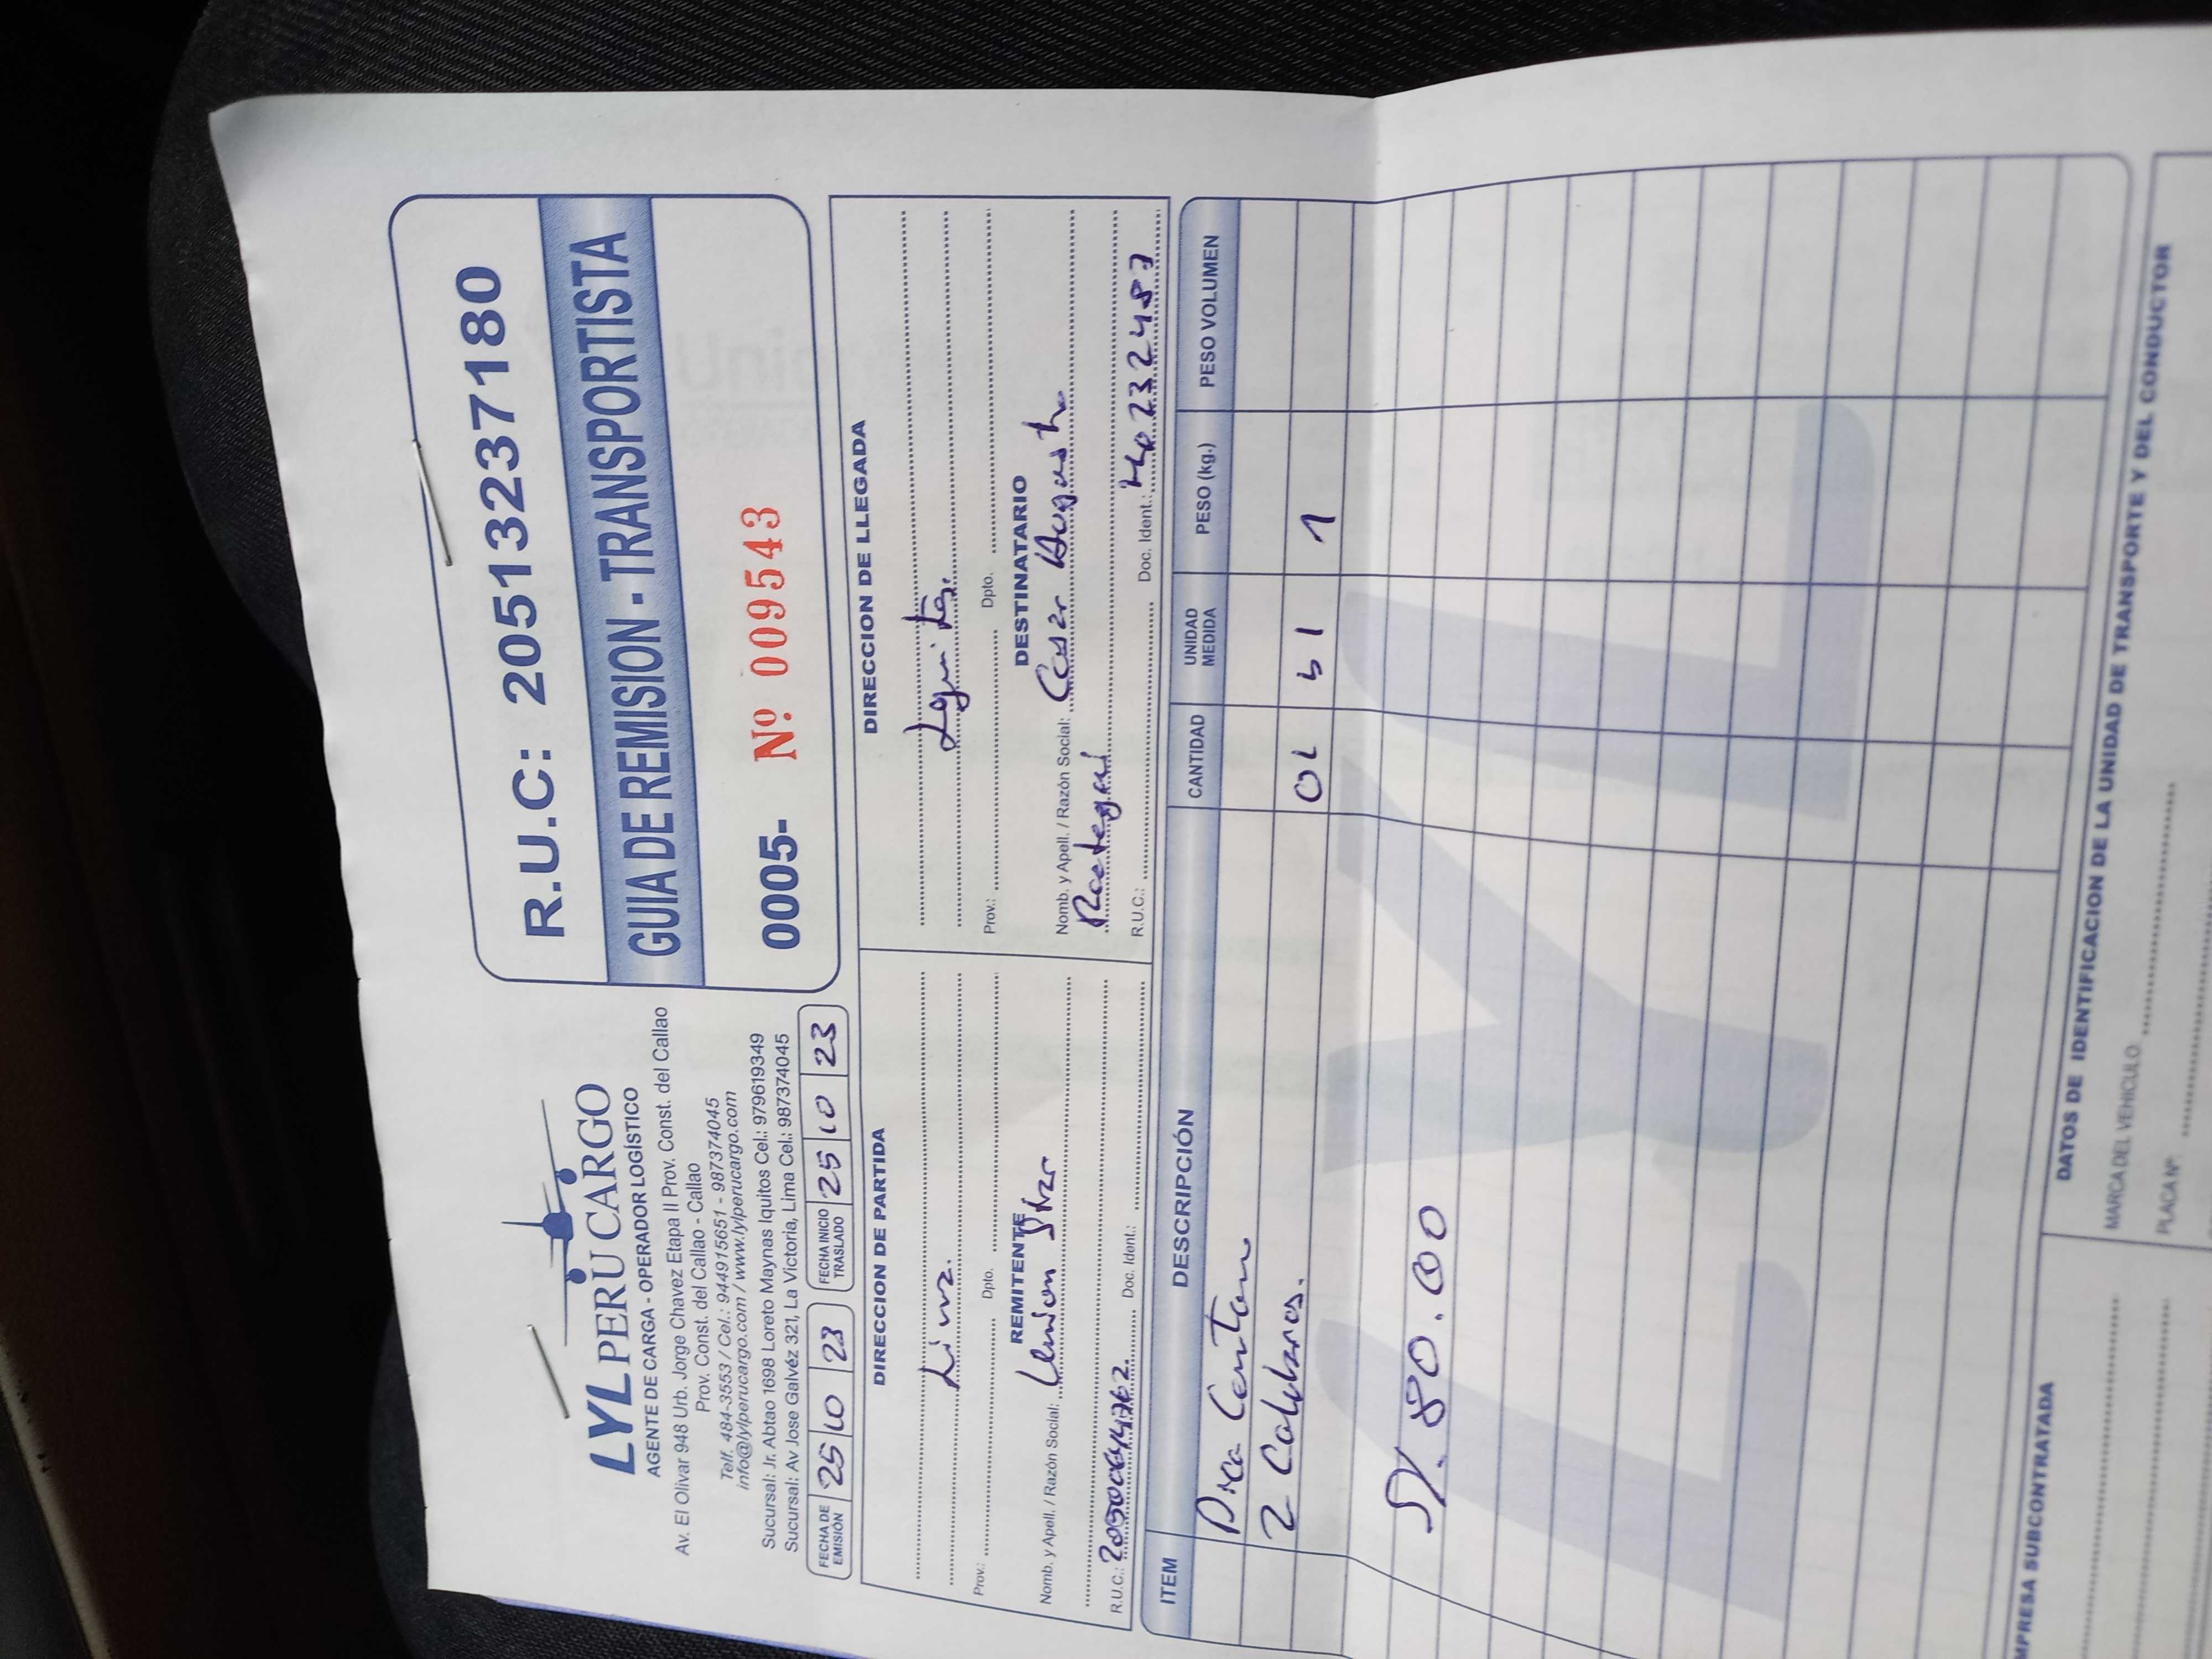 LYL PERU CARGO
AGENTE DE CARGA - OPERADOR LOGÍSTICO
Av. El Olivar 948 Urb. Jorge Chavez Etapa II Prov. Const. del Callao
Prov. Const. del Callao - Callao
Telf. 484-3553 / Cel.: 944915651 - 987374045
info@lylperucargo.com / www.lylperucargo.com
Sucursal: Jr. Abtao 1698 Loreto Maynas Iquitos Cel.: 979619349
Sucursal: Av Jose Galvéz 321, La Victoria, Lima Cel.: 987374045
R.U.C: 20513237180
GUIA DE REMISION - TRANSPORTISTA
0005- Nº 009543
FECHA DE EMISIÓN 25 10 23 FECHA INICIO TRASLADO 25 10 23
DIRECCION DE PARTIDA
Lima.
Prov.: Dpto.
REMITENTE
Nomb. y Apell. / Razón Social: Union Star
R.U.C.: Doc. Ident.:
DIRECCION DE LLEGADA
Iquitos.
Prov.: Dpto.
DESTINATARIO
Nomb. y Apell. / Razón Social: Cesar Augusto
R.U.C.: Doc. Ident.: 40232487
ITEM DESCRIPCIÓN CANTIDAD UNIDAD MEDIDA PESO (kg.) PESO VOLUMEN
2 01 1
S/. 80.00
EMPRESA SUBCONTRATADA
DATOS DE IDENTIFICACION DE LA UNIDAD DE TRANSPORTE Y DEL CONDUCTOR
MARCA DEL VEHICULO
PLACA Nº: